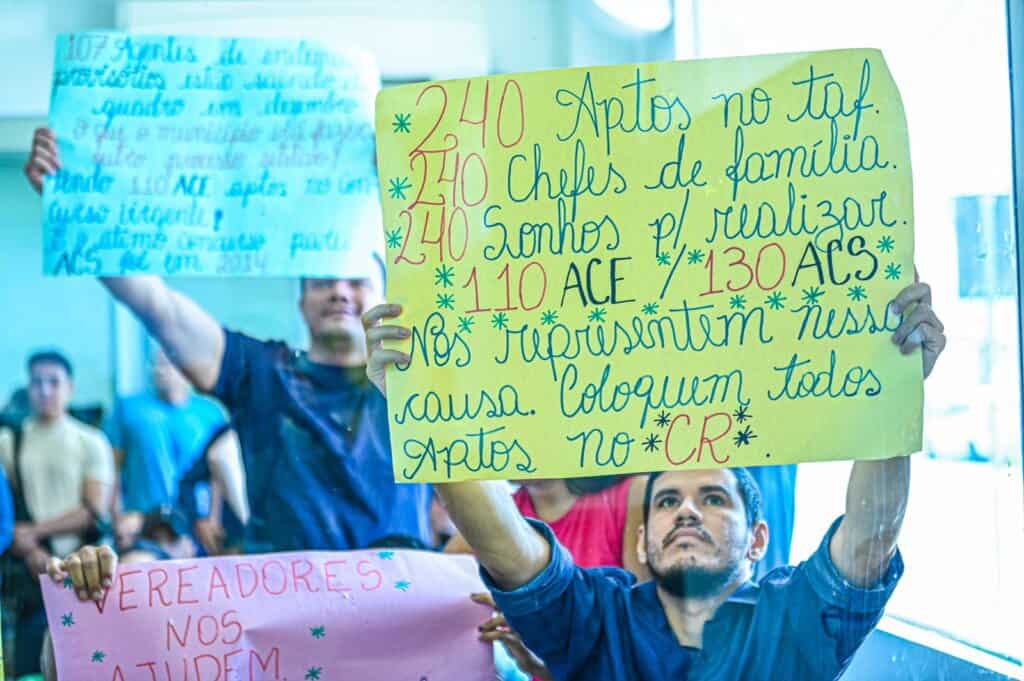 107 Agentes de endemia
provisórios estão saindo do
quadro em dezembro
O que o município irá fazer
outro processo seletivo?
Tendo 110 ACE aptos no con
curso Urgente!
E o último concurso para
ACS foi em 2014
240 Aptos no taf.
240 Chefes de família.
240 Sonhos p/ realizar.
110 ACE / 130 ACS
Nós representem nessa
causa. Coloquem todos
Aptos no *CR*.
VEREADORES
NOS
AJUDEM